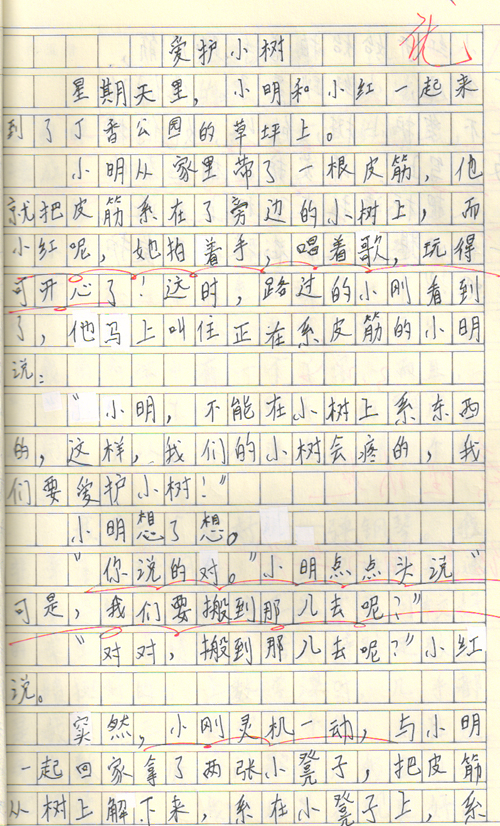 爱护小树
星期天里，小明和小红一起来
到了丁香公园的草坪上。
小明从家里带了一根皮筋，他
就把皮筋系在了旁边的小树上，而
小红呢，她拍着手，唱着歌，玩得
可开心了！这时，路过的小刚看到
了，他马上叫住正在系皮筋的小明
说：
“小明，不能在小树上系东西
的，这样，我们的小树会疼的，我
们要爱护小树！”
小明想了想。
“你说的对。”小明点点头说“
可是，我们要搬到那儿去呢？”
“对对，搬到那儿去呢？”小红
说。
突然，小刚灵机一动，与小明
一起回家拿了两张小凳子，把皮筋
从树上解下来，系在小凳子上，系